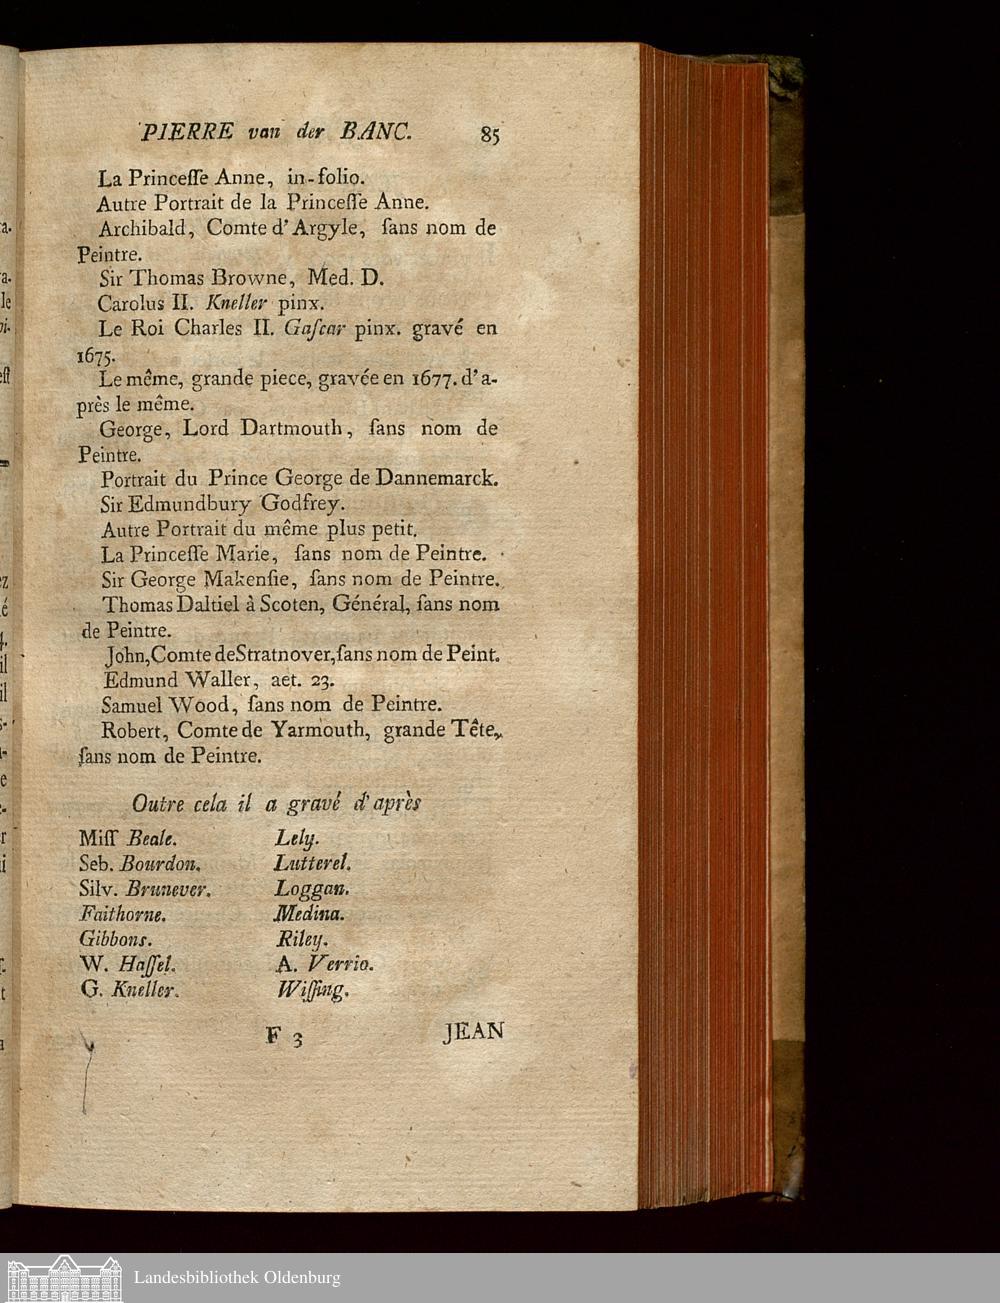 PIERRE van der BANC. 85
La Princeſſe Anne, in-folio.
Autre Portrait de la Princeſſe Anne.
Archibald, Comte d'Argyle, ſans nom de
Peintre.
Sir Thomas Browne, Med. D.
Carolus II. Kneller pinx.
Le Roi Charles II. Gaſcar pinx. gravé en
1675.
Le même, grande piece, gravée en 1677. d'a-
près le même.
George, Lord Dartmouth, ſans nom de
Peintre.
Portrait du Prince George de Dannemarck.
Sir Edmundbury Godfrey.
Autre Portrait du même plus petit.
La Princeſſe Marie, ſans nom de Peintre.
Sir George Makenſie, ſans nom de Peintre.
Thomas Daltiel à Scoten, Général, ſans nom
de Peintre.
John, Comte de Stratnover, ſans nom de Peint.
Edmund Waller, aet. 23.
Samuel Wood, ſans nom de Peintre.
Robert, Comte de Yarmouth, grande Tête,
ſans nom de Peintre.
Outre cela il a gravé d'après
Miſſ Beale. Lely.
Seb. Bourdon. Lutterel.
Silv. Brunever. Loggan.
Faithorne. Medina.
Gibbons. Riley.
W. Haſſel. A. Verrio.
G. Kneller. Wiſſing.
F 3 JEAN
Landesbibliothek Oldenburg